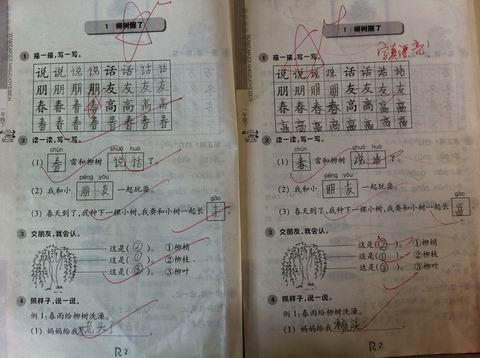 1 柳树醒了
1 描一描,写一写。
说 说 说 说 话 话 话 话
朋 朋 朋 朋 友 友 友 友
春 春 春 春 高 高 高 高
2 读一读,写一写。
chūn shuō huà
(1) 春 雷和柳树 说 话 了。
péng yǒu
(2) 我和小 朋 友 一起玩耍。
gāo
(3) 春天到了,我种下一棵小树,我要和小树一起长
3 交朋友,我会认。
这是( ② )。 ①柳梢
这是( ① )。 ②柳枝
这是( ③ )。 ③柳叶
4 照样子,说一说。
例1:春雨给柳树洗澡。
(1) 妈妈给我梳头
R2
1 柳树醒了
字真漂亮!
1 描一描,写一写。
说 说 说 说 话 话 话 话
朋 朋 朋 朋 友 友 友 友
春 春 春 春 高 高 高 高
2 读一读,写一写。
chūn shuō huà
(1) 春 雷和柳树 说 话 了。
péng yǒu
(2) 我和小 朋 友 一起玩耍。
gāo
(3) 春天到了,我种下一棵小树,我要和小树一起长 高
3 交朋友,我会认。
这是( ② )。 ①柳梢
这是( ① )。 ②柳枝
这是( ③ )。 ③柳叶
4 照样子,说一说。
例1:春雨给柳树洗澡。
(1) 妈妈给我梳头
R2